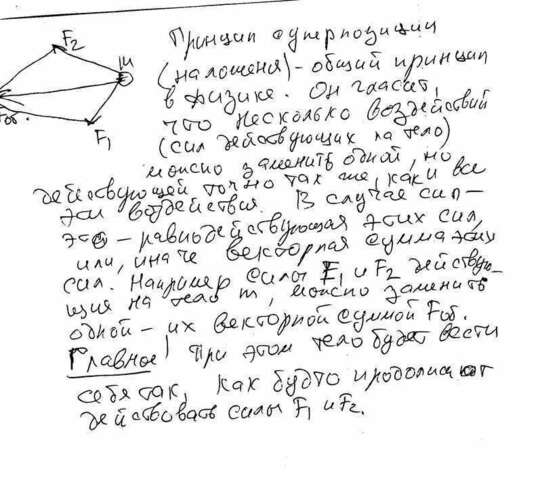 F₂
m
F₁
об.
Принцип суперпозиции
(наложения) - общий принцип
в физике. Он гласит,
что несколько воздействий
(сил действующих на тело)
можно заменить одной, но
действующей точно так же, как и все
эти воздействия. В случае сил -
это - равнодействующая этих сил,
или, иначе векторная сумма этих
сил. Например силы F₁ и F₂ действую-
щия на тело m, можно заменить
одной - их векторной суммой Fоб.
Главное! При этом тело будет вести
себя так, как будто продолжают
действовать силы F₁ и F₂.